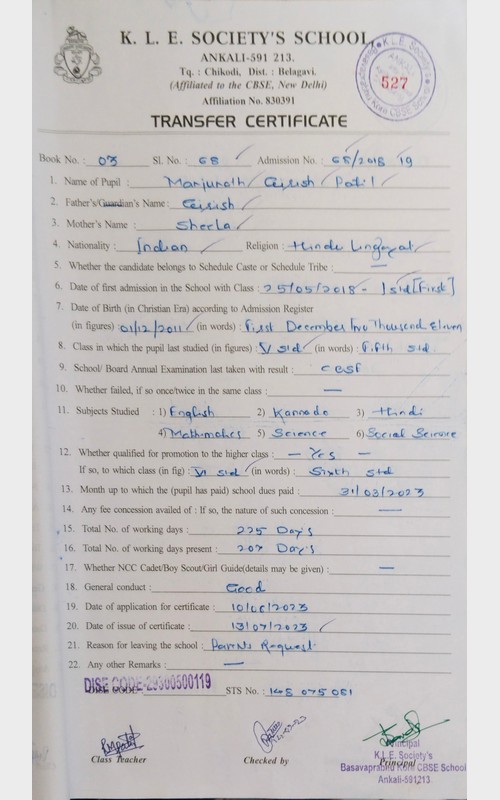 K. L. E. SOCIETY'S SCHOOL
ANKALI-591 213.
Tq. : Chikodi, Dist. : Belagavi.
(Affiliated to the CBSE, New Delhi)
Affiliation No. 830391
K.L.E. Society's
527
TRANSFER CERTIFICATE
Book No. : 03 Sl. No. : 68 Admission No. : 68/2018 19
1. Name of Pupil : Manjunath Girish Patil
2. Father's/Guardian's Name : Girish
3. Mother's Name : Sheela
4. Nationality : Indian Religion : Hindu Lingayat
5. Whether the candidate belongs to Schedule Caste or Schedule Tribe : —
6. Date of first admission in the School with Class : 25/05/2018 - I std [First]
7. Date of Birth (in Christian Era) according to Admission Register
(in figures) 01/12/2011 (in words) : First December Two Thousand Eleven
8. Class in which the pupil last studied (in figures) : V std (in words) : Fifth std
9. School/ Board Annual Examination last taken with result :
10. Whether failed, if so once/twice in the same class : —
11. Subjects Studied : 1) English 2) Kannada 3) Hindi
4) Mathmatics 5) Science 6) Social Science
12. Whether qualified for promotion to the higher class : — Yes —
If so, to which class (in fig) : VI std (in words) : Sixth std
13. Month up to which the (pupil has paid) school dues paid : 31/03/2023
14. Any fee concession availed of : If so, the nature of such concession : —
15. Total No. of working days : 225 Day's
16. Total No. of working days present : 207 Day's
17. Whether NCC Cadet/Boy Scout/Girl Guide(details may be given) : —
18. General conduct : Good
19. Date of application for certificate : 10/06/2023
20. Date of issue of certificate : 13/07/2023
21. Reason for leaving the school : Parents Request
22. Any other Remarks : —
DISE CODE-29300500119
STS No. : 148 075 081
Class Teacher Checked by Principal
Principal
K.L.E. Society's
Basavaprabhu Kore CBSE School
Ankali-591213.